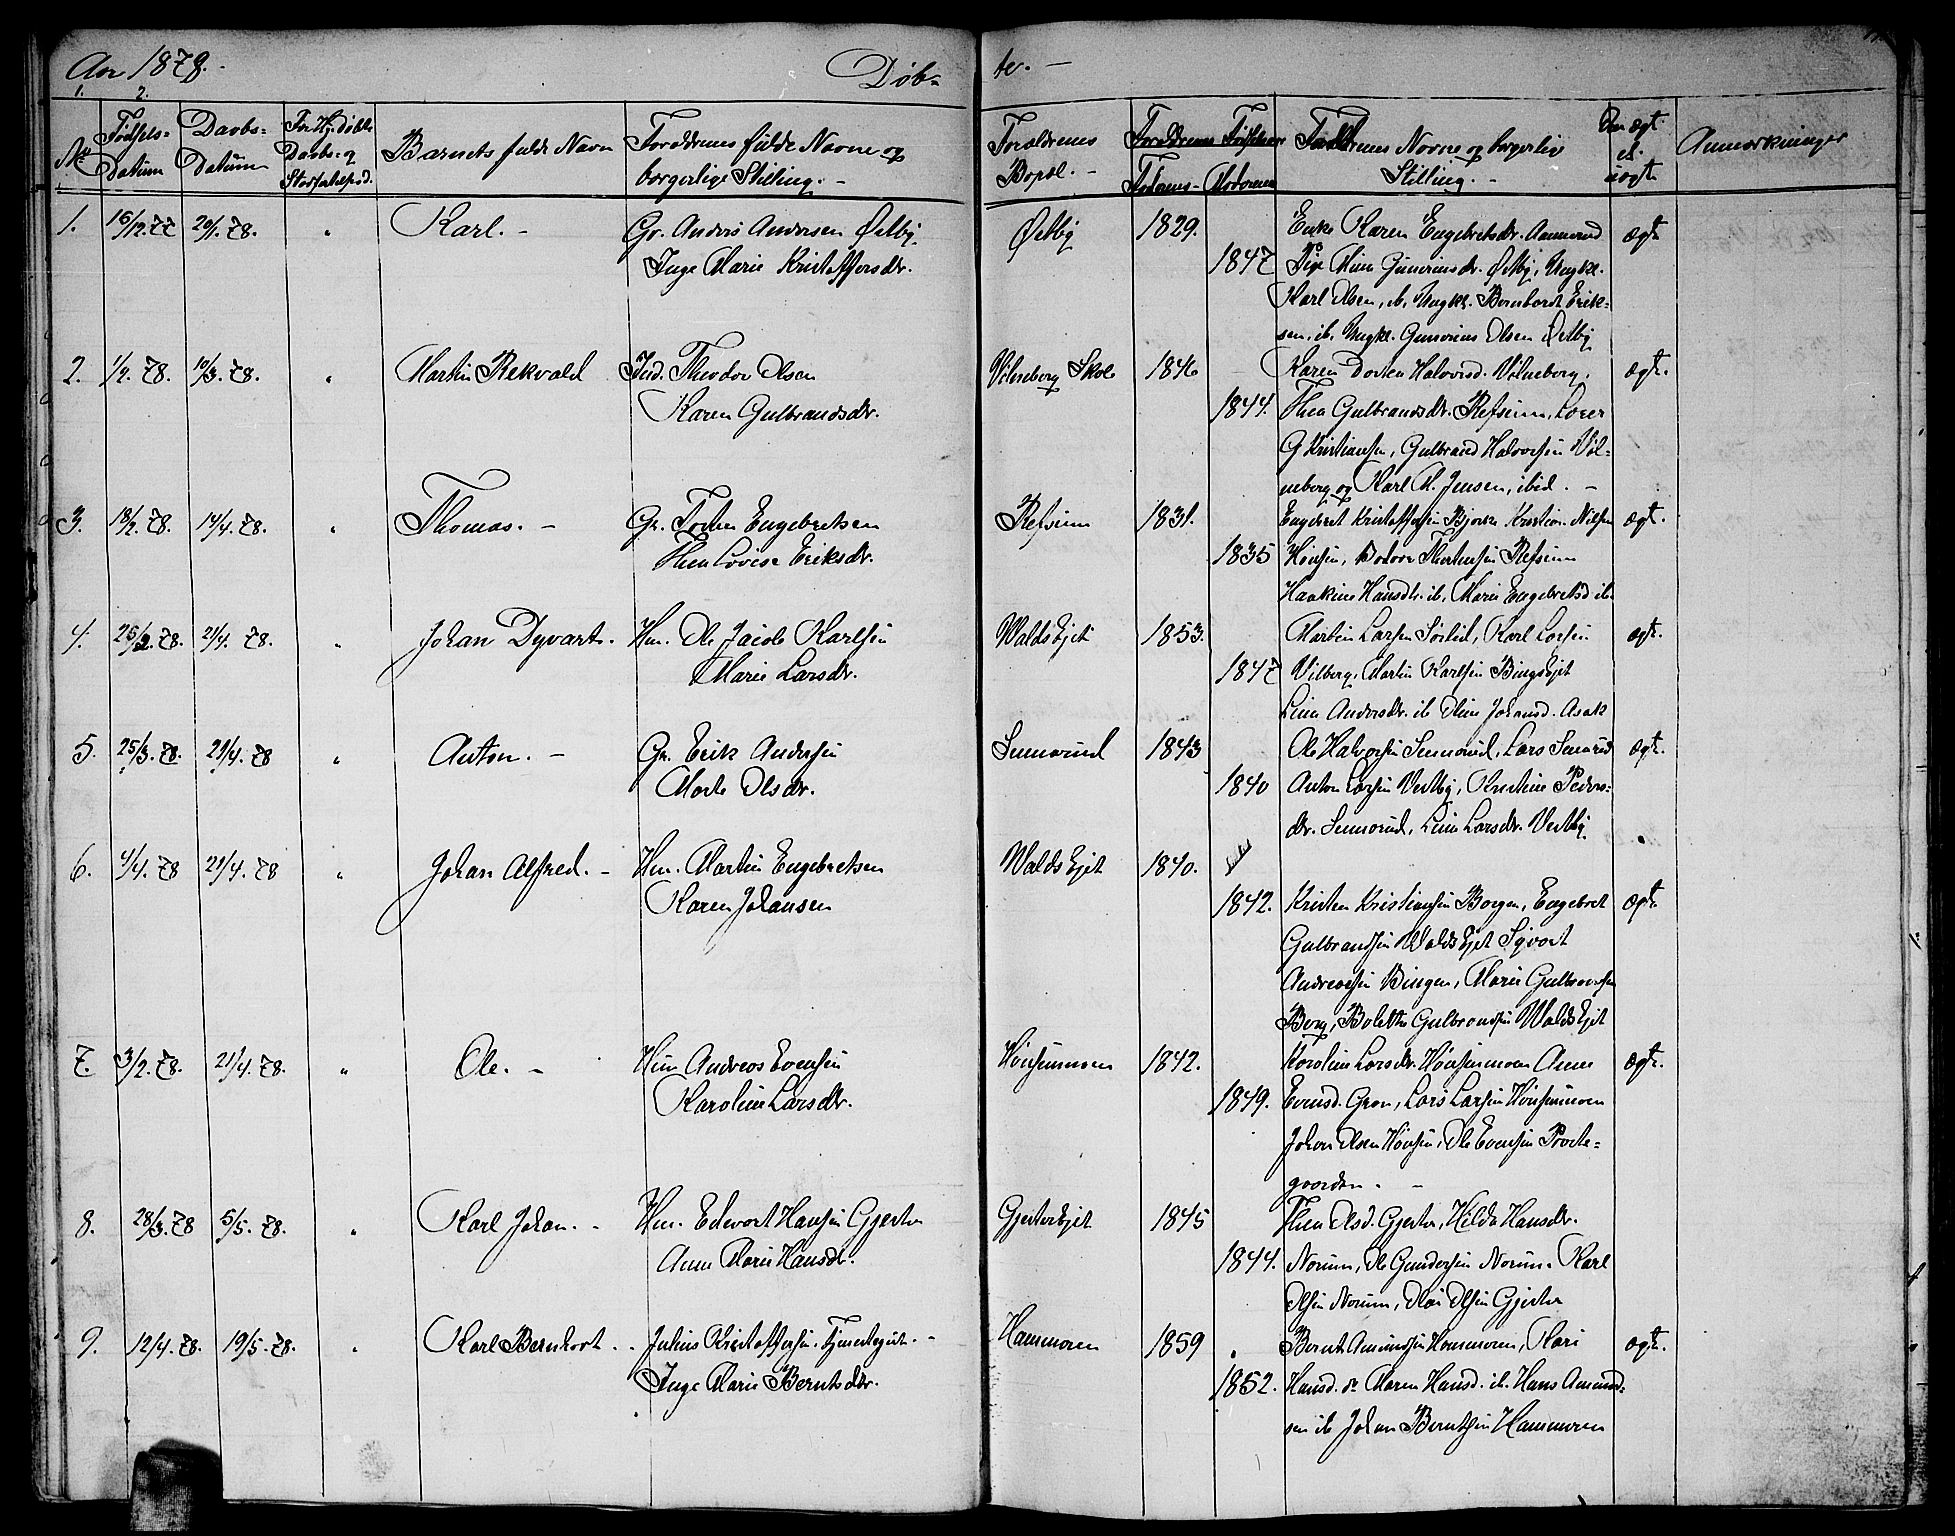 Aar 1878.
Døb-
te. -
1. 2.
No
Fødsels-
Datum
Daabs-
Datum
For Hj. døbte
Daabs- og
Stadfæstelsesd.
Barnets fulde Navn
Forældrenes fulde Navne og
borgerlige Stilling. -
Forældrenes
Bopæl. -
Forældrenes Fødselsaar
Faderens - Moderens
Faddernes Navne og borgerlige
Stilling. -
Om ægt.
el.
uægt.
Anmærkninger
1. 16/12.77 20/1.78. " Karl. - Gr. Anders Andersen Østby
Inge Marie Kristoffersdr.
Østby 1829. Enke Karen Engebretsdr. Aamorud ægt.
1847 Pige Mina Guneriusdr. Østby, Ungkl.
Karl Olsen, ib. Ungkl. Bernhardt Erik-
sen, ib. Ungkl. Gunerius Olsen Østby
2. 1/2. 78. 10/3. 78. " Martin Rekvald Ind. Theodor Olsen
Karen Gulbrandsdr.
Vilneberg Skole 1846 Karen Dorten Halvorsd. Vilneberg. ægt.
1844. Thea Gulbrandsdr. Refsum, Lærer
G Kristiansen, Gulbrand Halvorsen Vil-
neberg og Karl M. Jensen, ibid. -
3. 18/2. 78. 14/4. 78. " Thomas. - Gr. Torsten Engebretsen
Thea Lovise Eriksdr.
Refsum 1831. Engebret Kristoffersen Bjorke Kristian Nilsen ægt.
1835 Hønsen, Bodora Thorstensen Refsum
Haakine Hansdr. ib, Marie Engebretsd ib.
4. 25/2. 78. 21/4. 78. " Johan Dyvart. Hm. Ole Jacob Karlsen
Marie Larsdr.
Walds Ejet 1853. Martin Larsen Sørlid, Karl Larsen ægt.
1847 Vilberg, Martin Karlsen Bingsejet
Lina Andersdr. ib Oline Johansd. Asak
5. 25/3. 78. 21/4. 78 " Anton. - Gr. Erik Andersen
Marte Olsdr.
Sunnerud 1843 Ole Halvorsen Sunnerud, Lars Sunnerud ægt.
1840 Anton Larsen Vestby, Kristine Peders-
dr. Sunnerud, Lina Larsdr. Vestby
6. 4/4. 78 21/4. 78 " Johan Alfred. - Hm. Martin Engebretsen
Karen Johansen
Walds Ejet 1840.
1842. Kristen Kristiansen Borgen, Engebret ægt.
Gulbrandsen Walds Ejet Syvert
Andreassen Bingen, Maren Gulbrandsen
Berg, Bolette Gulbrandsen Walds Ejet
7. 3/2. 78. 21/4. 78. " Ole. - Hm Andreas Evensen
Karoline Larsdr.
Hønsenmoen 1842. Karoline Larsdr. Hønsenmoen Anne ægt.
1849. Evensd. Gran, Lars Larsen Hønsenmoen
Johan Olsen Hønsen, Ole Evensen Præste-
gaarden. -
8. 28/3. 78 5/5. 78. " Karl Johan. - Hm. Edvart Hansen Gjester
Anne Marie Hansdr.
Gjesterejet 1845 Thea Olsd. Gjester, Hilda Hansdr.
1844. Norum, Ole Gundersen Norum. Karl
Olsen Norum, Olai Olsen Gjester
9. 12/4. 78. 19/5. 78. " Karl Bernhart. - Julius Kristoffersen. Tjenestegut. -
Inge Marie Berntsdr.
Hammeren 1859 Bernt Amundsen Hammeren, Mari ægt.
1852. Hansd. og Maren Hansd. ib. Hans Amund-
sen ib Johan Berntsen Hammeren